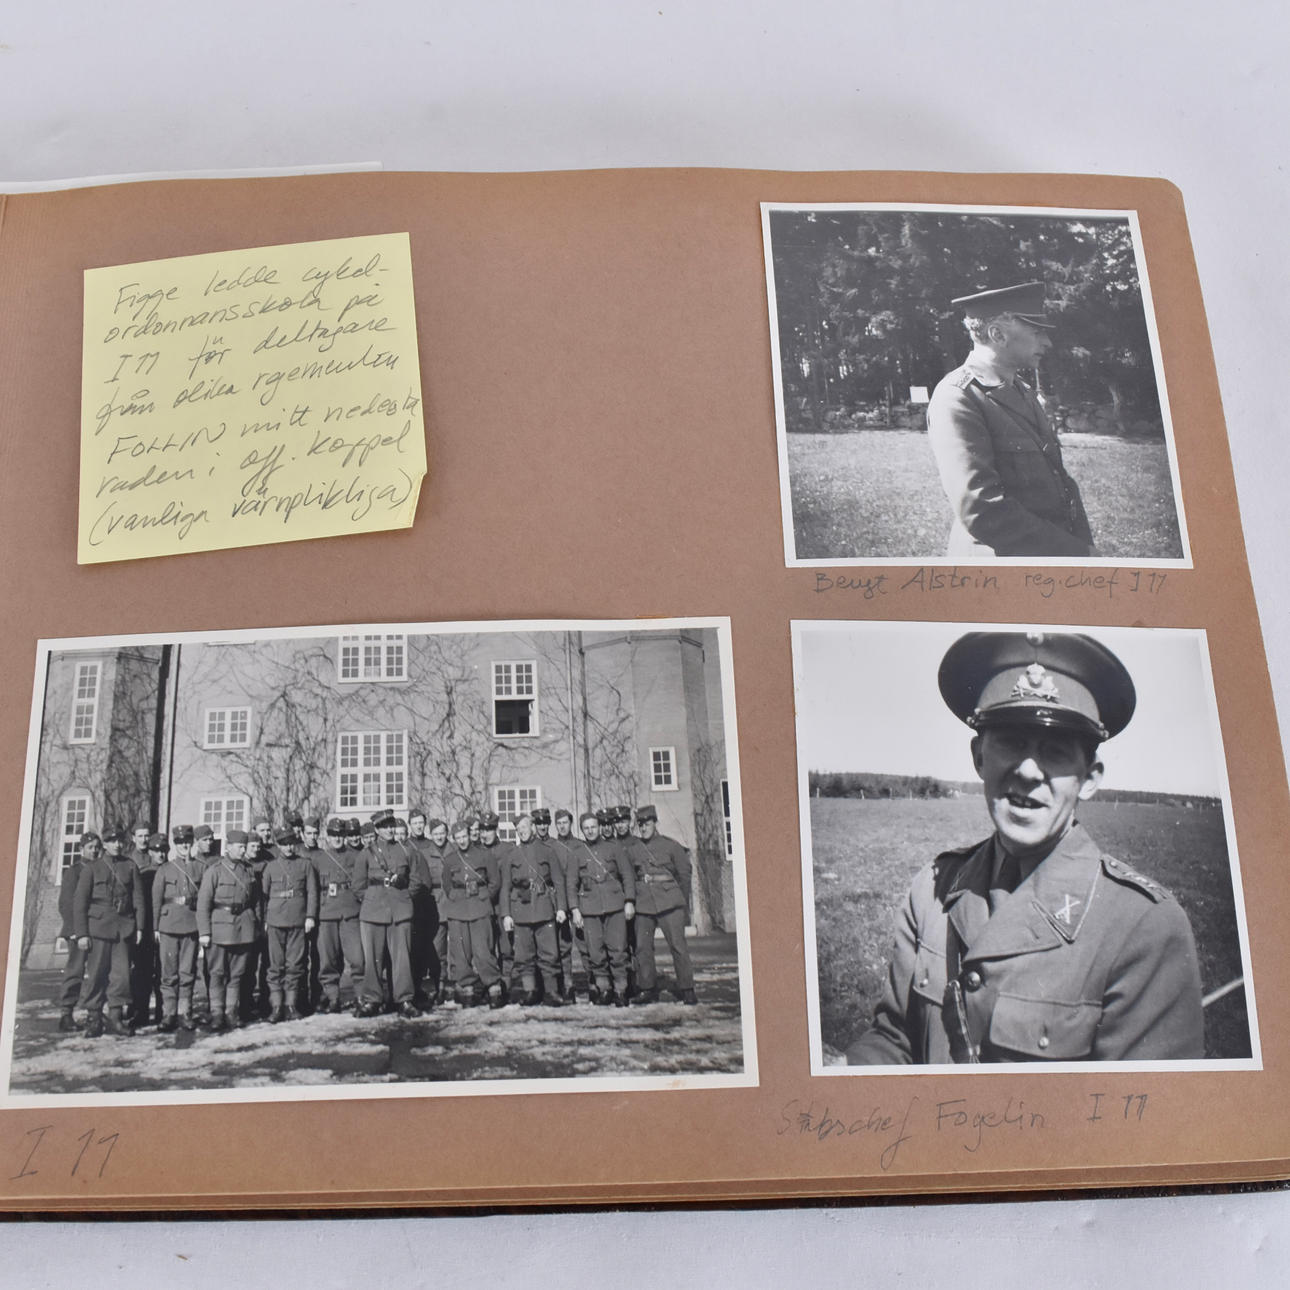 Figge ledde cykel-
ordonnansskola på
I 11 för deltagare
från olika rgementen
FOLLIN mitt nedersta
raden i off. koppel
(vanliga värnpliktiga)
Bengt Alstrin reg.chef I 11
I 11
Stabschef Fogelin I 11